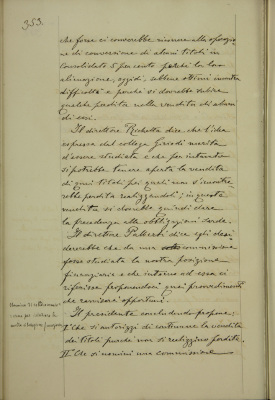 353.
che forse ci converrebbe rinviare alla
e di conversione di alcuni titoli in
Consolidato 5 per cento perchè la loro
alienazione, oggidì, sebbene ottimi incontra
difficoltà e perchè si dovrebbe subire
qualche perdita nella vendita di alcuni
di essi.
Il direttore Rochetta dice che l'idea
espressa dal collega merita
d'essere studiata e che per intanto
si potrebbe tenere aperta la vendita
di quei titoli pei quali non s'incontre-
rebbe perdita realizzandoli; in questa
si dovrebbe quindi dare
la precedenza alle obbligazioni Sarde.
Il direttore dice ch'egli desi-
dererebbe che da una commissione
fosse studiata la nostra posizione
finanziaria e che intorno ad essa ci
riferisse proponendoci quei provvedimenti
che ravvisasse opportuni.
Il presidente concludendo propone:
I° che si autorizzi di continuare la vendita
dei titoli purchè non si realizzino perdite.
II° Che si nomini una commissione